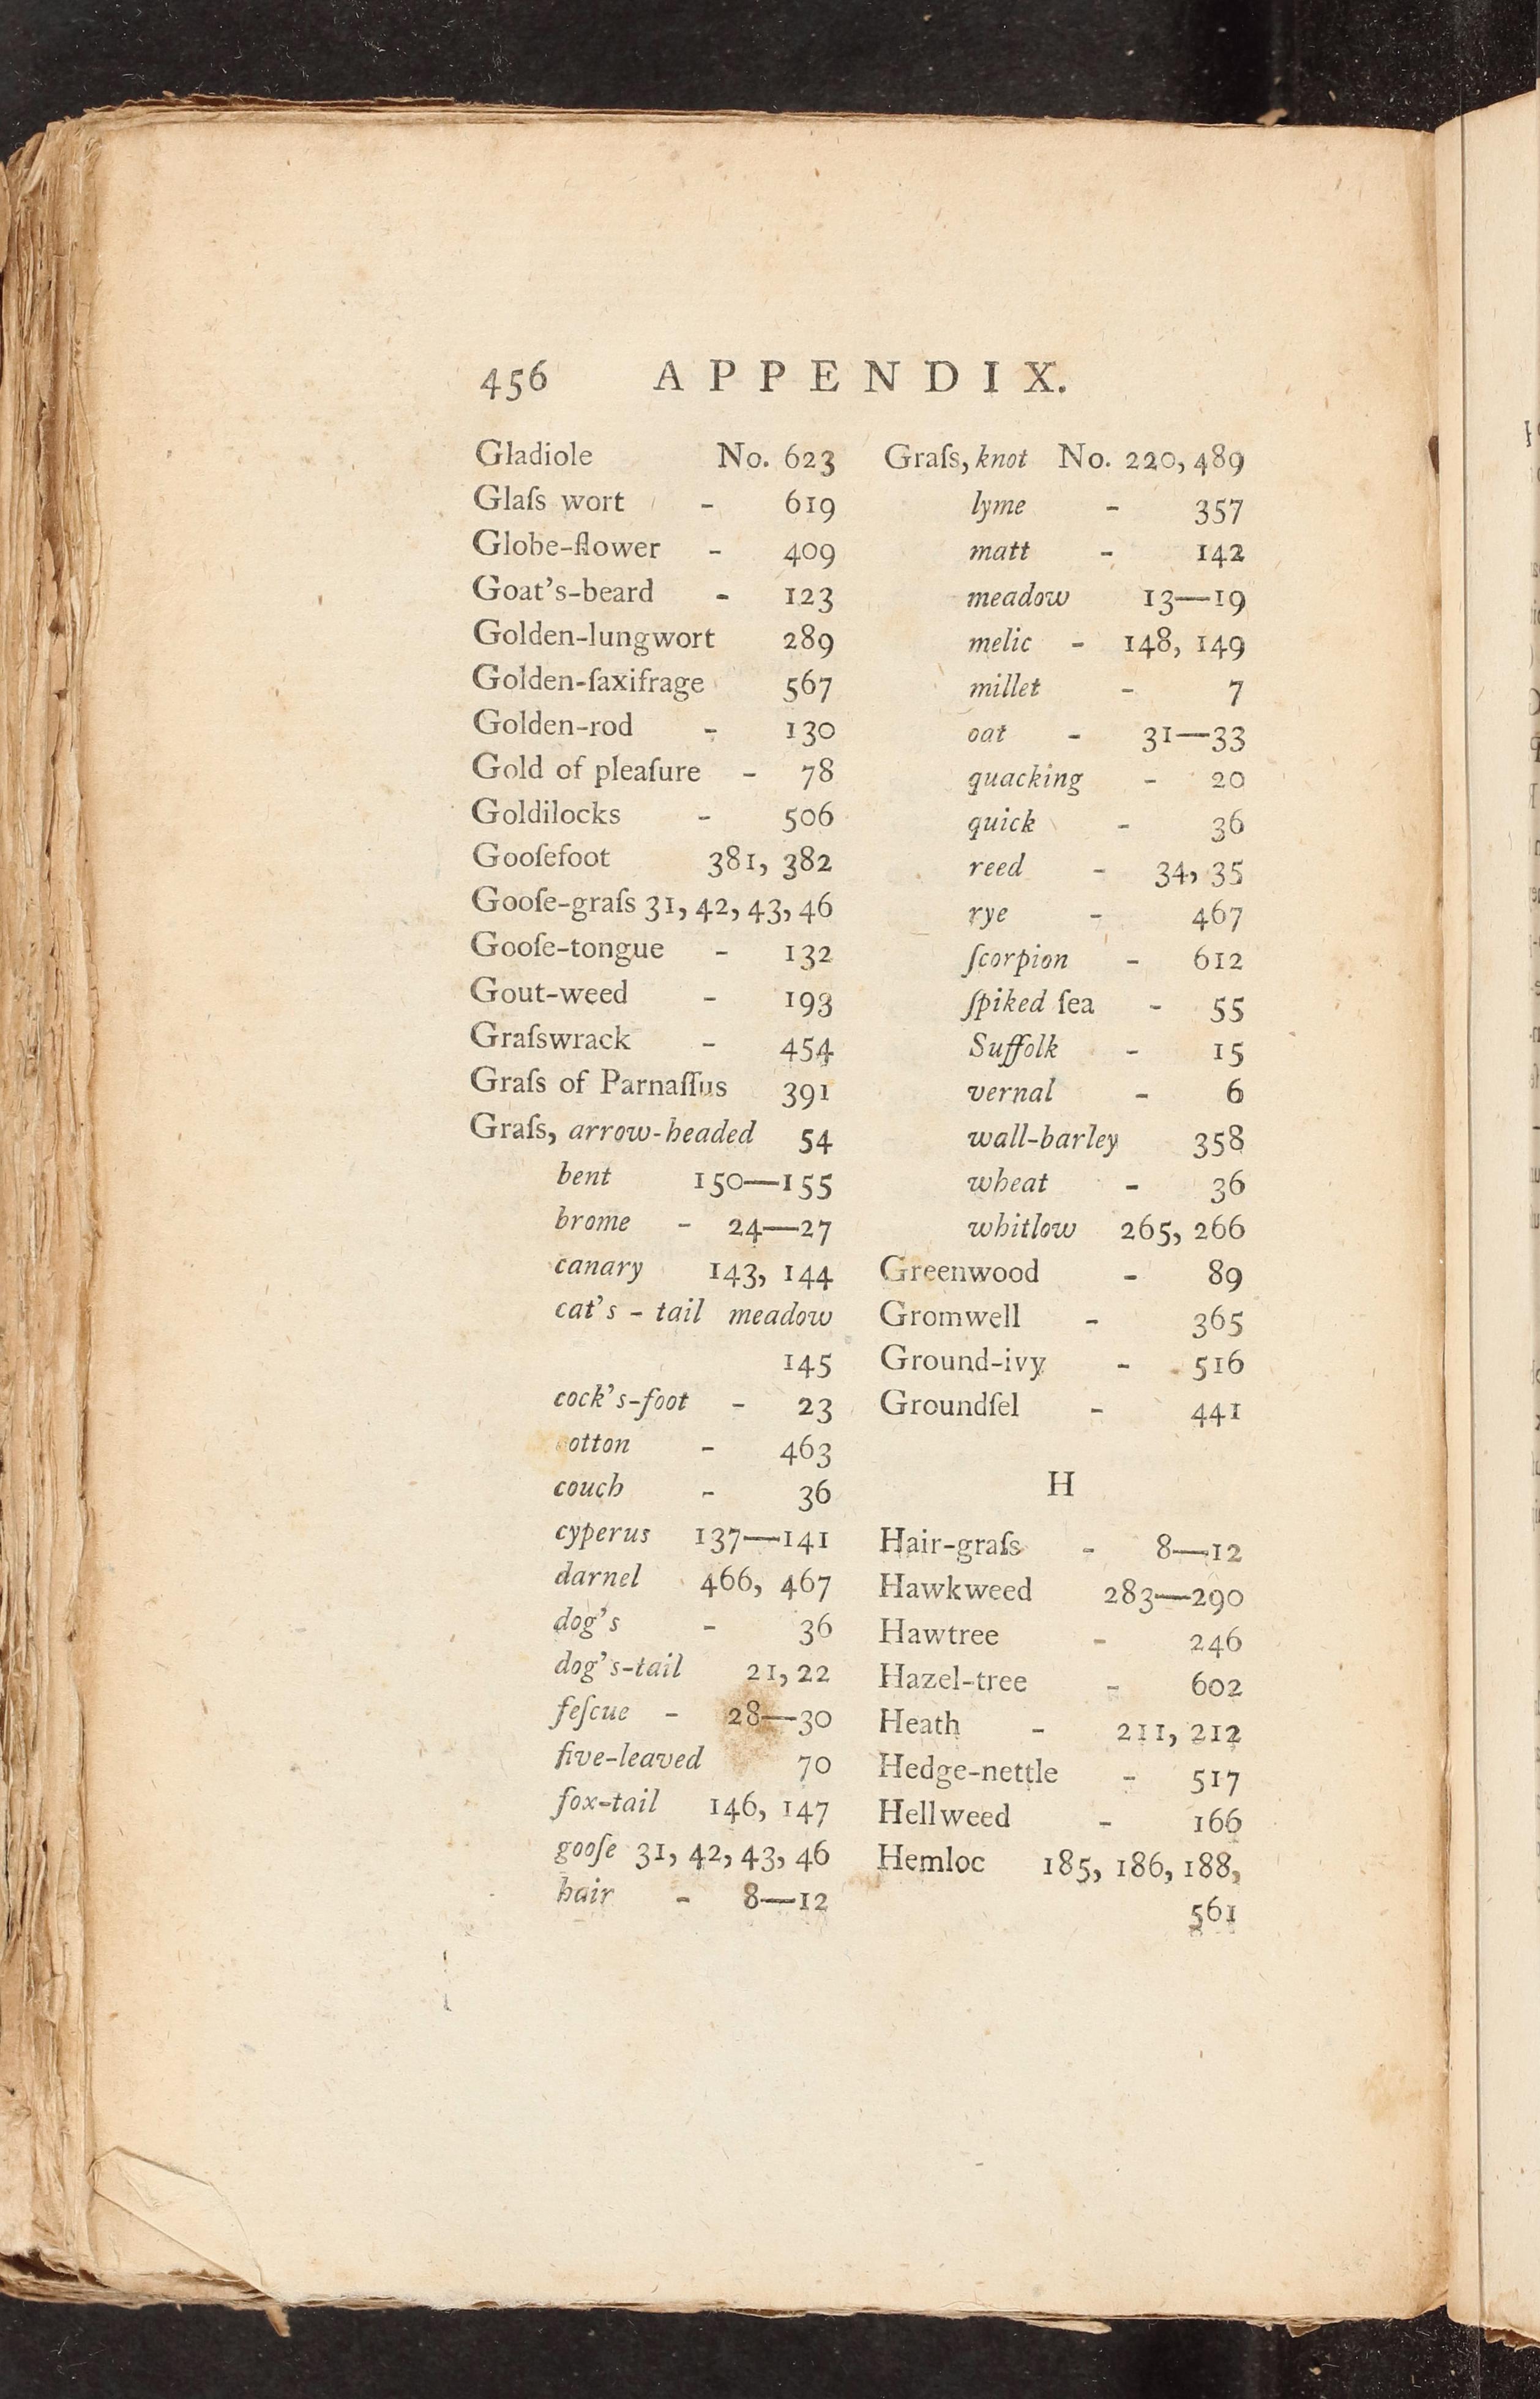 456 APPENDIX.
Gladiole No. 623
Glaſs wort - 619
Globe-flower - 409
Goat's-beard - 123
Golden-lungwort 289
Golden-ſaxifrage 567
Golden-rod - 130
Gold of pleaſure - 78
Goldilocks - 506
Gooſefoot 381, 382
Gooſe-graſs 31, 42, 43, 46
Gooſe-tongue - 132
Gout-weed - 193
Graſswrack - 454
Graſs of Parnaſſus 391
Graſs, arrow-headed 54
bent 150—155
brome - 24—27
canary 143, 144
cat's - tail meadow
145
cock's-foot - 23
otton - 463
couch - 36
cyperus 137—141
darnel 466, 467
dog's - 36
dog's-tail 21, 22
feſcue - 28—30
five-leaved 70
fox-tail 146, 147
gooſe 31, 42, 43, 46
hair - 8—12
Graſs, knot No. 220, 489
lyme - 357
matt - 142
meadow 13—19
melic - 148, 149
millet - 7
oat - 31—33
quacking - 20
quick - 36
reed - 34, 35
rye - 467
ſcorpion - 612
ſpiked ſea - 55
Suffolk - 15
vernal - 6
wall-barley 358
wheat - 36
whitlow 265, 266
Greenwood - 89
Gromwell - 365
Ground-ivy - 516
Groundſel - 441
H
Hair-graſs - 8—12
Hawkweed 283—290
Hawtree - 246
Hazel-tree - 602
Heath - 211, 212
Hedge-nettle - 517
Hellweed - 166
Hemloc 185, 186, 188,
561